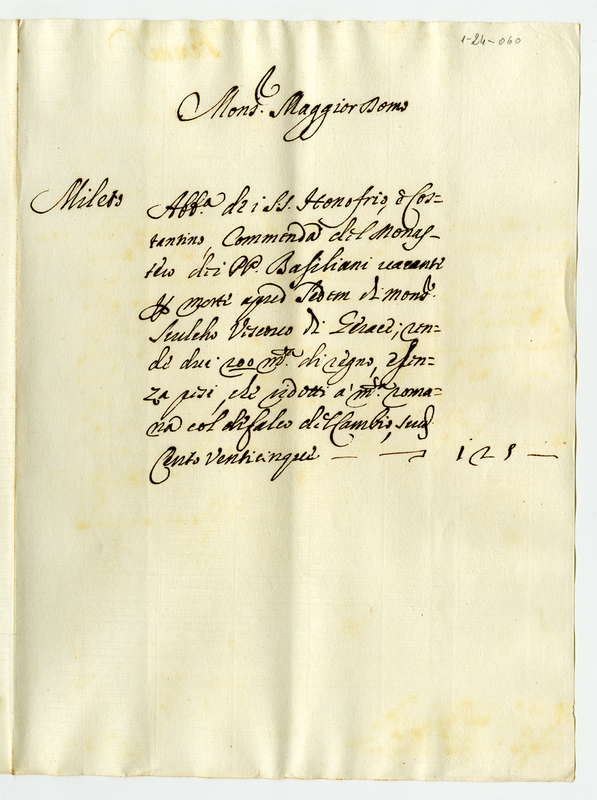 1-24-060
Mons.r Maggior Domo
Mileto Abb.a dei SS. Honofrio, e Cos=
tantino, Commenda del Monas=
tero dei PP. Basiliani vacante
per morte apud Sedem di mons.r
Vescovo di Geraci; ren=
de duc: 200 m.ta di regno, e sen=
za pesi, che ridotti a m.ta roma=
na col difalco del Cambio, scudi
Cento Venticinque — — 125 —